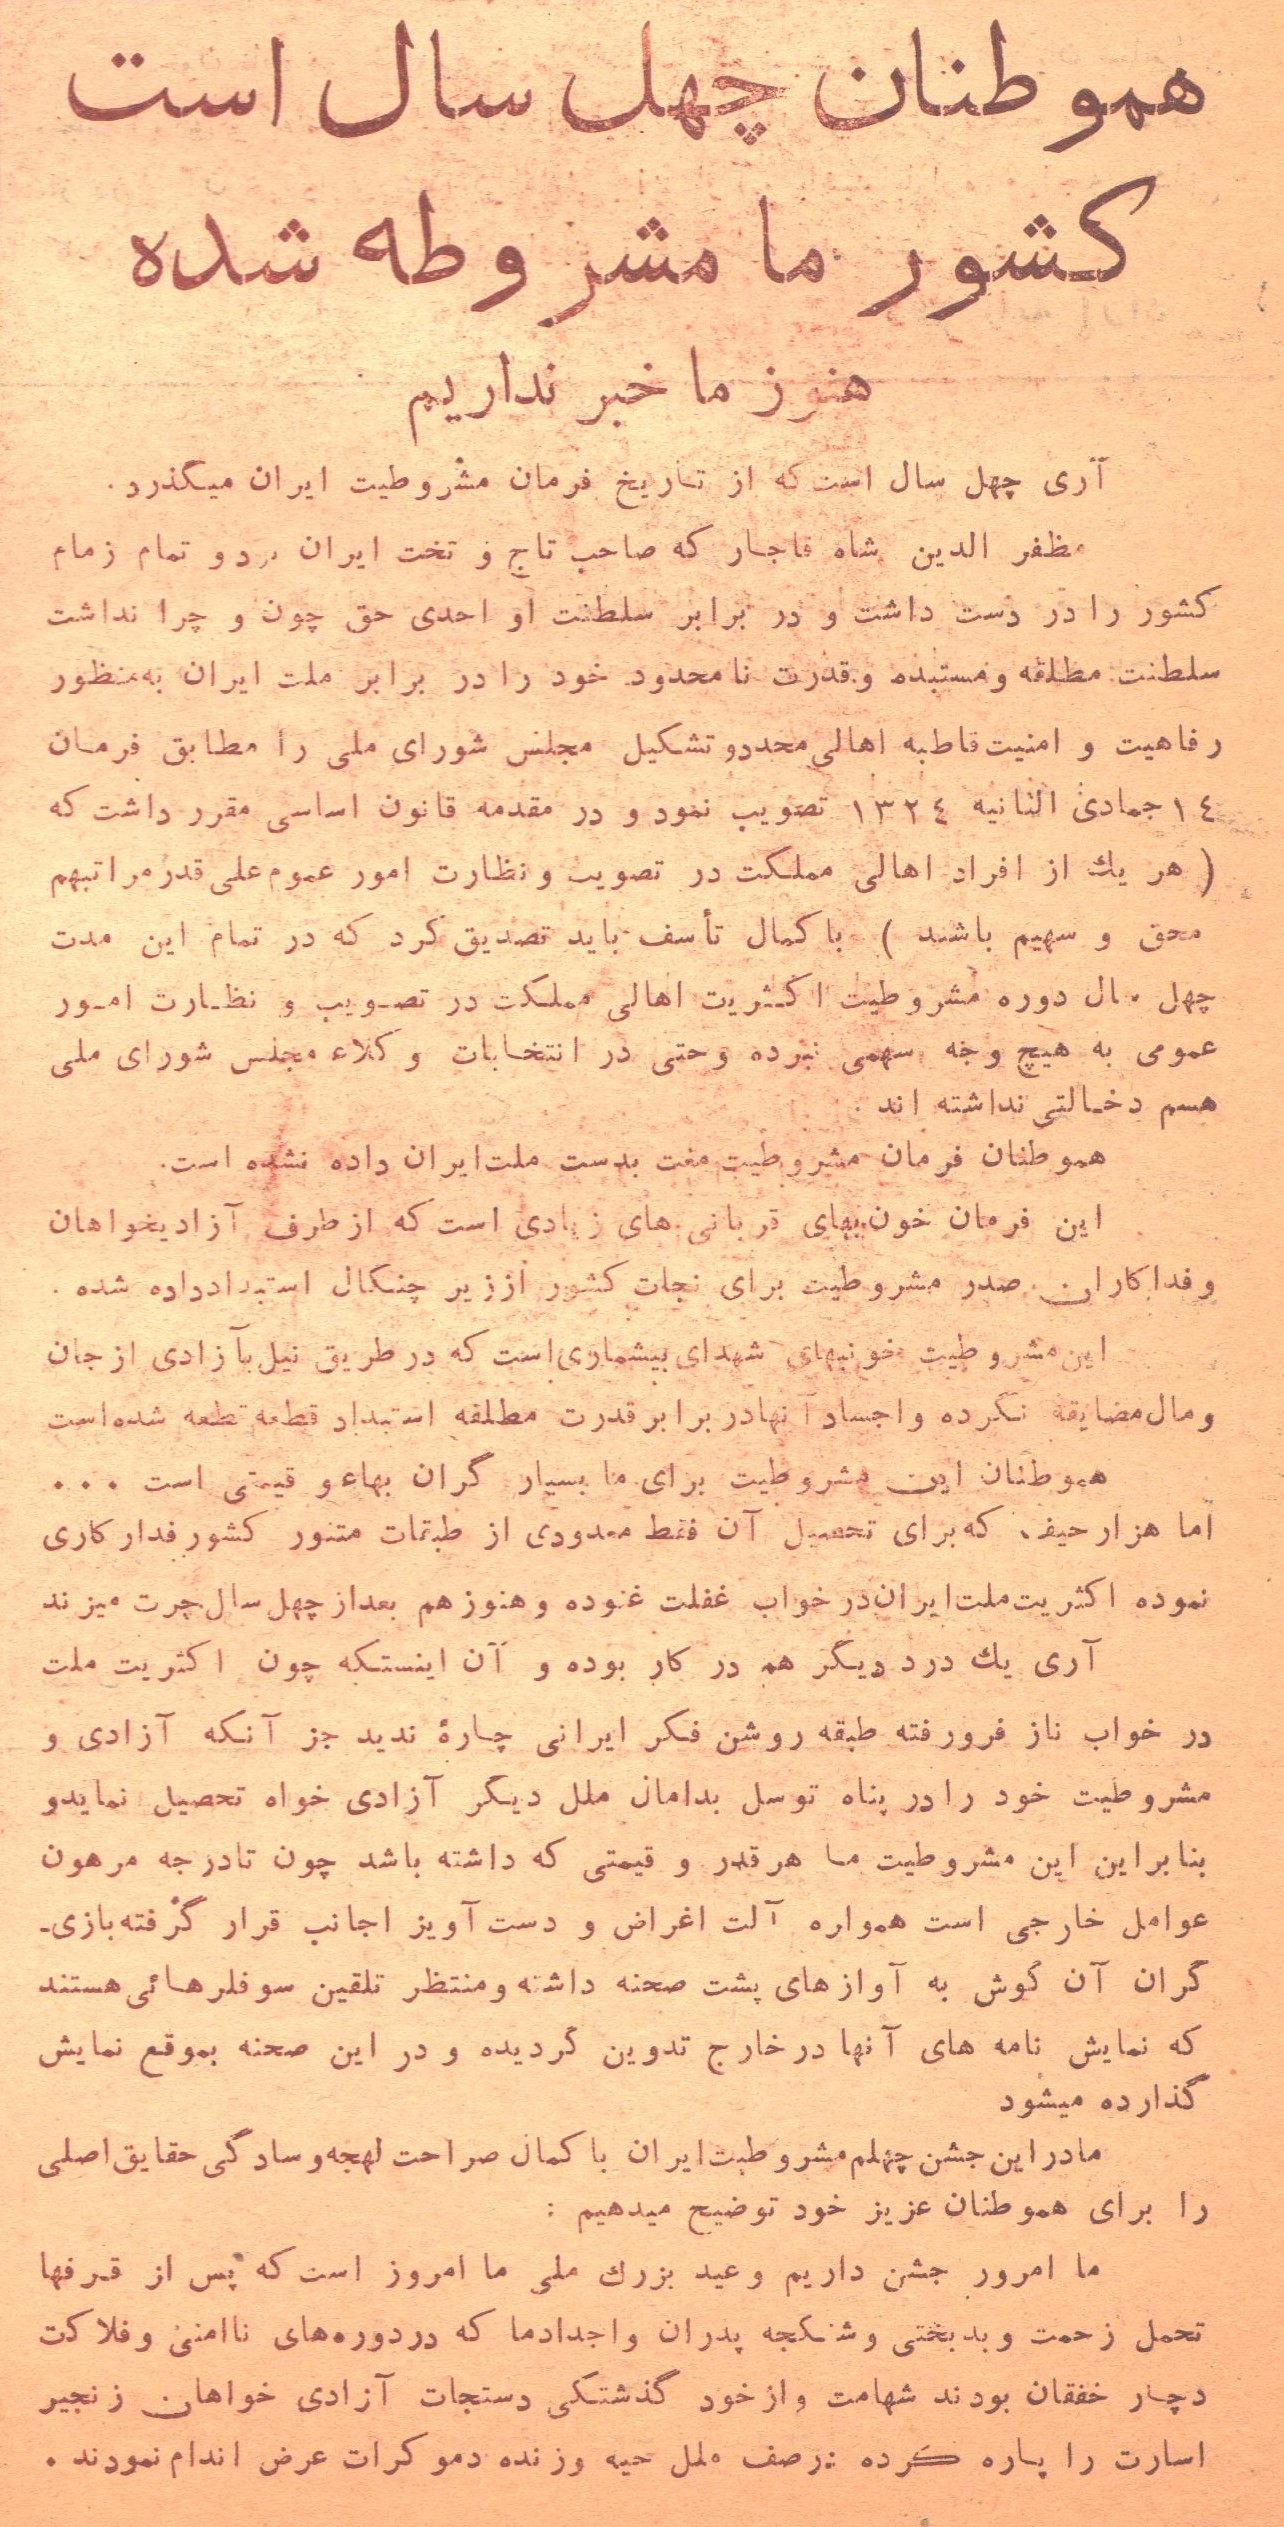 هموطنان چهل سال است
کشور ما مشروطه شده
هنوز ما خبر نداریم
آری چهل سال است که از تاریخ فرمان مشروطیت ایران میگذرد.
مظفر الدین شاه قاجار که صاحب تاج و تخت ایران بود و تمام زمام
کشور را در دست داشت و در برابر سلطنت او احدی حق چون و چرا نداشت
سلطنت مطلقه و مستبده و قدرت نامحدود خود را در برابر ملت ایران به‌منظور
رفاهیت و امنیت قاطبه اهالی محدد و تشکیل مجلس شورای ملی را مطابق فرمان
١٤ جمادی الثانیه ١٣٢٤ تصویب نمود و در مقدمه قانون اساسی مقرر داشت که
( هر یك از افراد اهالی مملکت در تصویب و نظارت امور عموم علی قدر مراتبهم
محق و سهیم باشند ) با کمال تأسف باید تصدیق کرد که در تمام این مدت
چهل سال دوره مشروطیت اکثریت اهالی مملکت در تصویب و نظارت امور
عمومی به هیچ وجه سهمی نبرده و حتی در انتخابات وکلاء مجلس شورای ملی
هسم دخالتی نداشته اند.
هموطنان فرمان مشروطیت مفت بدست ملت ایران داده نشده است.
این فرمان خون بهای قربانی های زیادی است که از طرف آزادیخواهان
و فداکاران صدر مشروطیت برای نجات کشور از زیر چنگال استبداد داده شده.
این مشروطیت خونبهای شهدای بیشماری است که در طریق نیل بآزادی از جان
و مال مضایقه نکرده و اجساد آنها در برابر قدرت مطلقه استبداد قطعه قطعه شده است
هموطنان این مشروطیت برای ما بسیار گران بهاء و قیمتی است ...
اما هزار حیف که برای تحصیل آن فقط معدودی از طبقات متنور کشور فدارکاری
نموده اکثریت ملت ایران در خواب غفلت غنوده و هنوز هم بعد از چهل سال چرت میزند
آری یك درد دیگر هم در کار بوده و آن اینستکه چون اکثریت ملت
در خواب ناز فرورفته طبقه روشن فکر ایرانی چارهٔ ندید جز آنکه آزادی و
مشروطیت خود را در پناه توسل بدامان ملل دیگر آزادی خواه تحصیل نماید و
بنابراین این مشروطیت ما هر قدر و قیمتی که داشته باشد چون تادرجه مرهون
عوامل خارجی است همواره آلت اغراض و دست آویز اجانب قرار گرفته بازی-
گران آن گوش به آوازهای پشت صحنه داشته و منتظر تلقین سوفلرهائی هستند
که نمایش نامه های آنها در خارج تدوین گردیده و در این صحنه بموقع نمایش
گذارده میشود
ما در این جشن چهلم مشروطیت ایران با کمال صراحت لهجه و سادگی حقایق اصلی
را برای هموطنان عزیز خود توضیح میدهیم :
ما امرور جشن داریم و عید بزرك ملی ما امروز است که پس از قرفها
تحمل زحمت و بدبختی و شکنجه پدران و اجداد ما که در دوره‌های ناامنی و فلاکت
دچار خفقان بودند شهامت و از خود گذشتگی دستجات آزادی خواهان زنجیر
اسارت را پاره کرده درصف ملل حیه و زنده دموکرات عرض اندام نمودند.